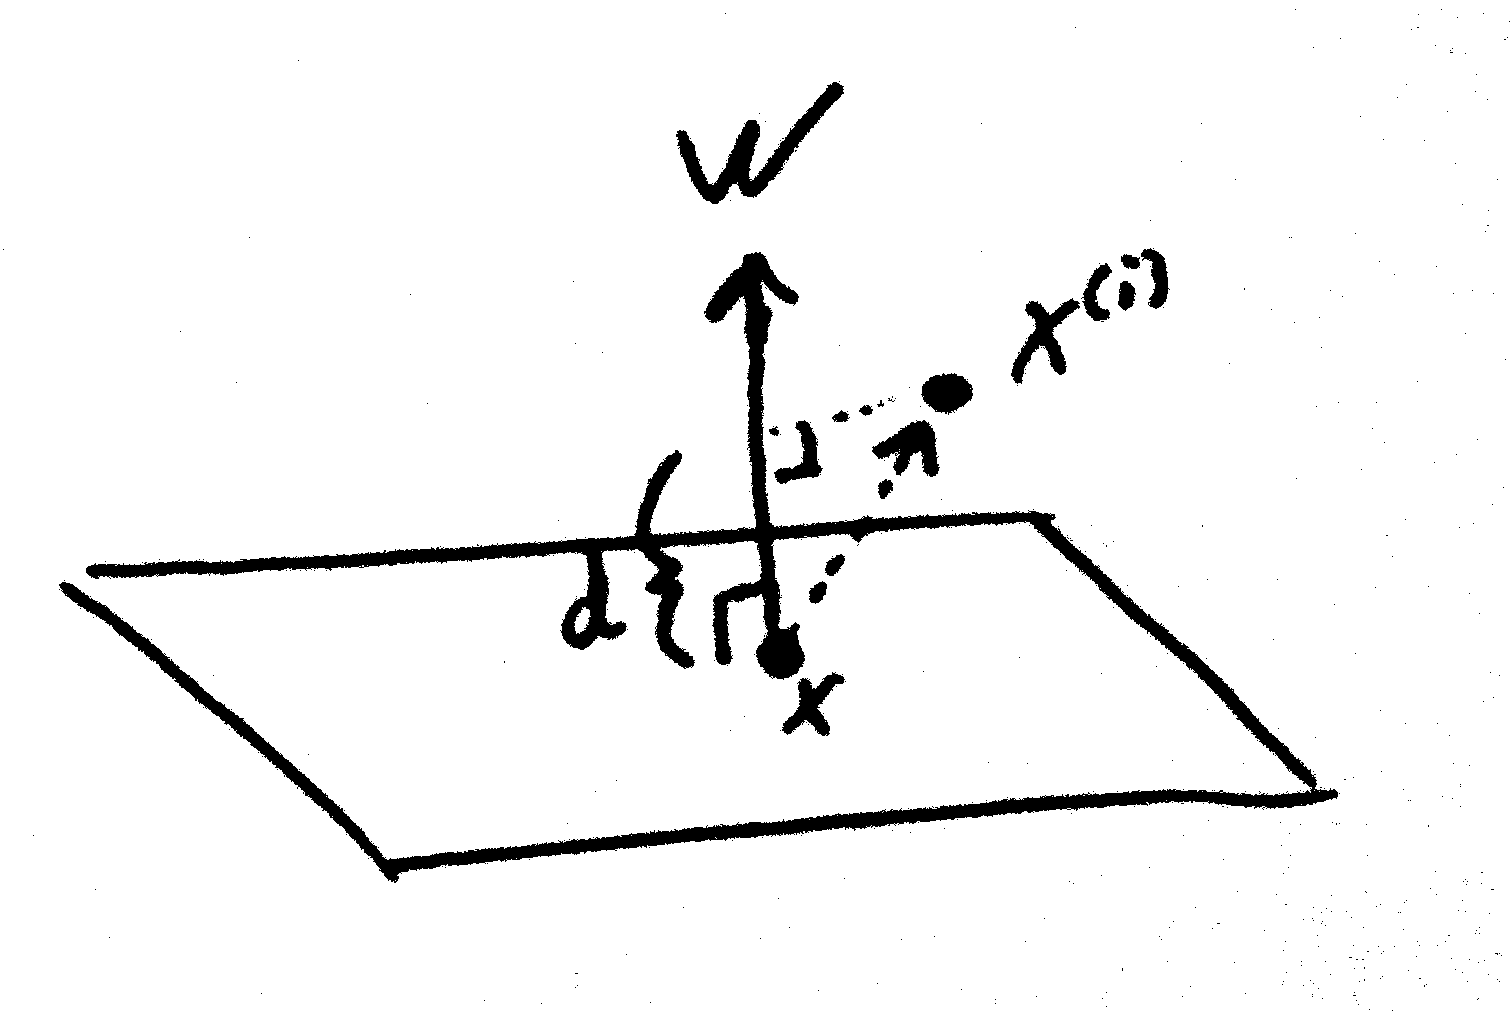 W
x^(i)
d
x